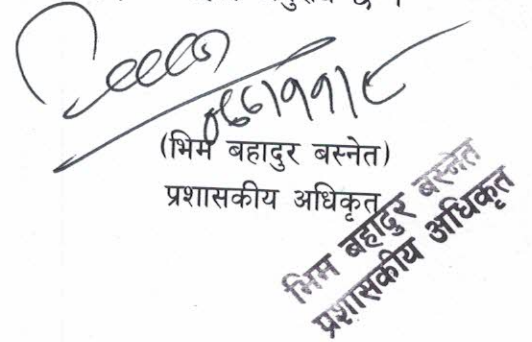 (भिम बहादुर बस्नेत)
प्रशासकीय अधिकृत
भिम बहादुर बस्नेत
प्रशासकीय अधिकृत